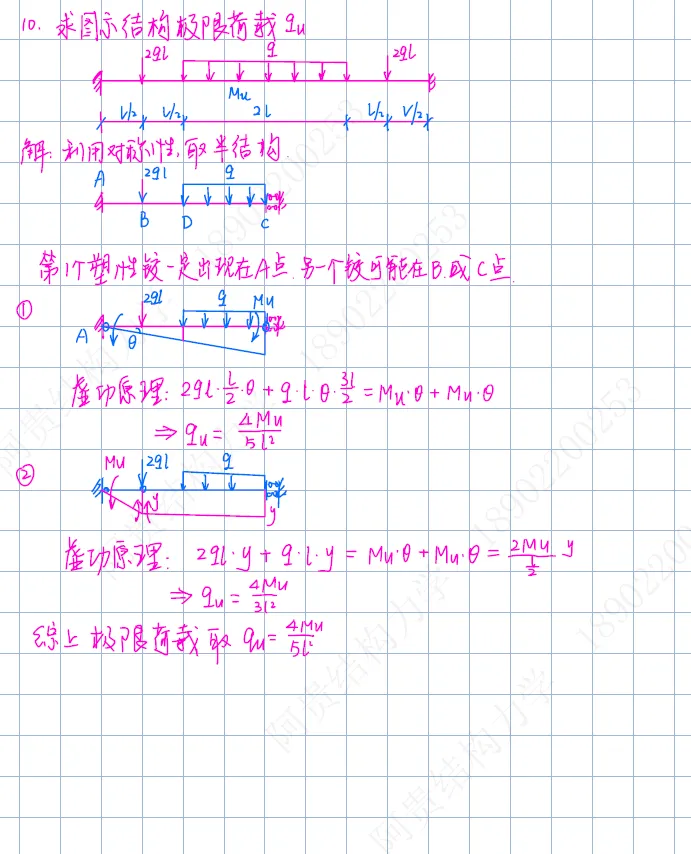 10. 求图示结构极限荷载 qu
2ql q 2ql
Mu
l/2 l/2 2l l/2 l/2
解: 利用对称性, 取半结构.
A 2ql q
B D C
第1个塑性铰一定出现在A点. 另一个铰可能在B.或C点.
① 2ql q Mu
A θ
虚功原理: 2ql·l/2·θ + q·l·θ·3l/2 = Mu·θ + Mu·θ
⇒ qu = 4Mu/5l²
② Mu 2ql q
y y
虚功原理: 2ql·y + q·l·y = Mu·θ + Mu·θ = 2Mu/(l/2) y
⇒ qu = 4Mu/3l²
综上 极限荷载取 qu = 4Mu/5l²
阿贵结构力学 18902200253